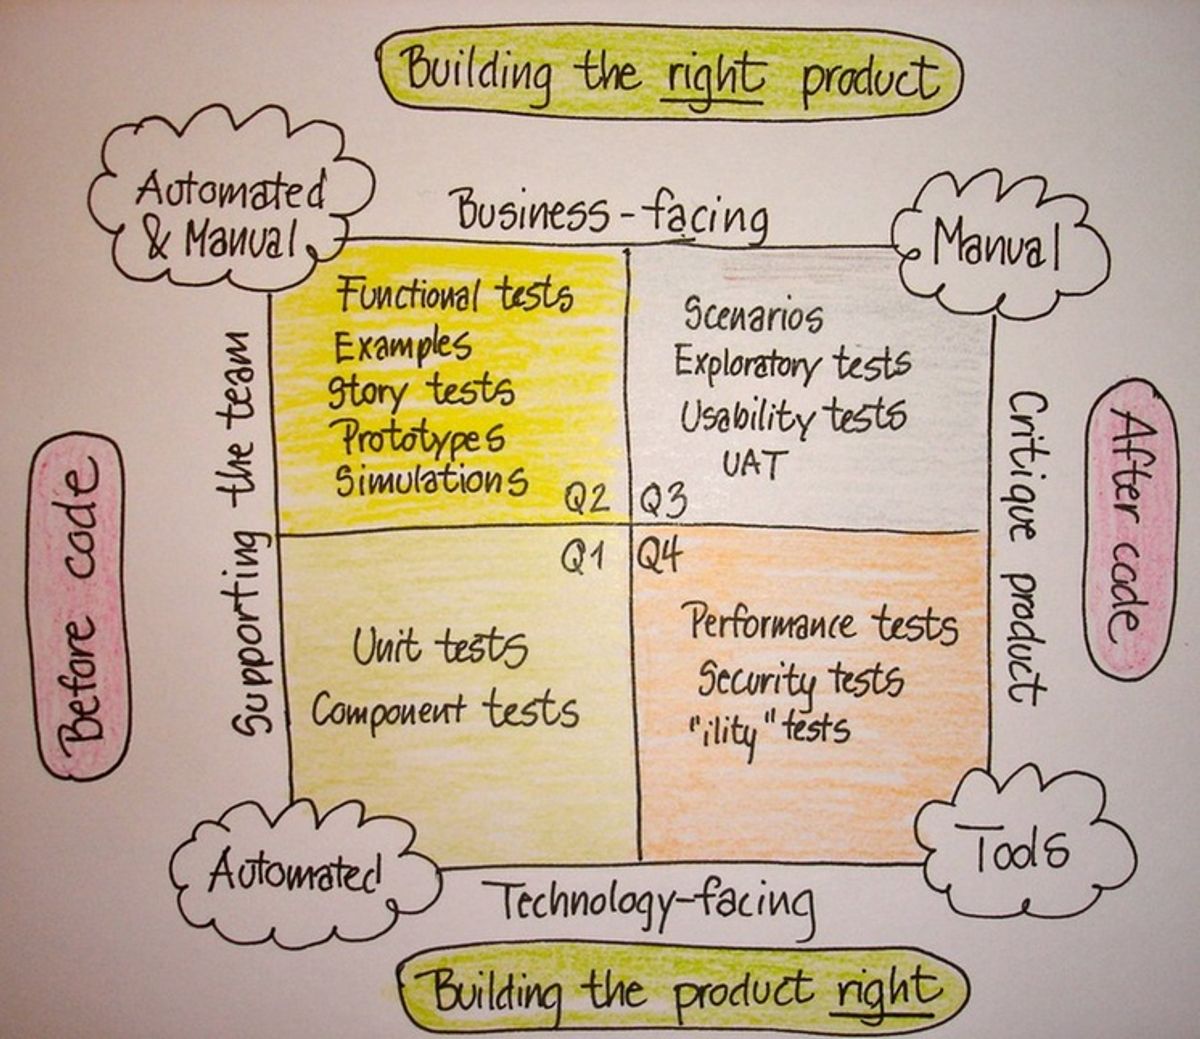 Building the right product
Automated
& Manual
Business-facing
Manual
Functional tests
Examples
Story tests
Prototypes
Simulations
Q2
Scenarios
Exploratory tests
Usability tests
UAT
Q3
Supporting the team
Before code
Critique product
After code
Q1
Unit tests
Component tests
Q4
Performance tests
Security tests
"ility" tests
Automated
Technology-facing
Tools
Building the product right